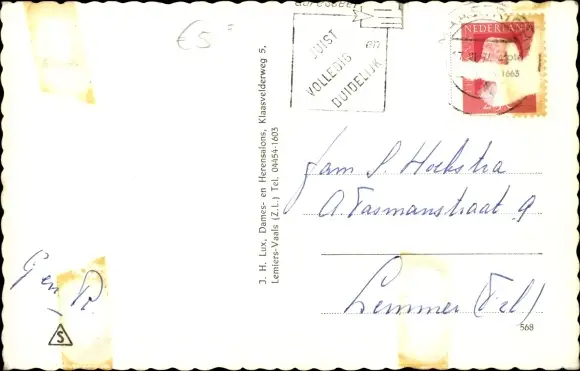 €5=
JUIST
VOLLEDIG
en
DUIDELIJK
NEDERLAND
J. H. Lux, Dames- en Herensalons, Klaasvelderweg 5,
Lemiers-Vaals (Z.L.) Tel. 04454-1603
Fam S. Hoekstra
A. Tasmanstraat 9
Lemmer (Fsl)
G en R.
S
568